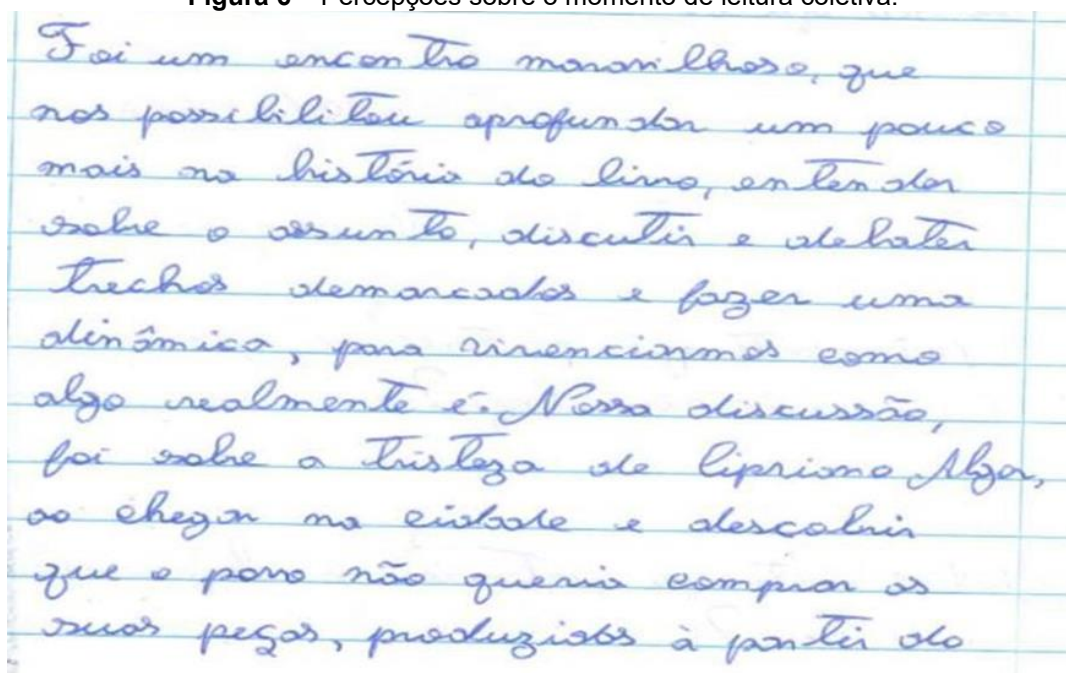 Figura 6 – Percepções sobre o momento de leitura coletiva.
Foi um encontro maravilhoso, que
nos possibilitou aprofundar um pouco
mais na história do livro, entender
sobre o assunto, discutir e debater
trechos demarcados e fazer uma
dinâmica, para vivenciarmos como
algo realmente é. Nossa discussão,
foi sobre a tristeza de Cipriano Algor,
ao chegar na cidade e descobrir
que o povo não queria comprar as
suas peças, produzidas à partir do